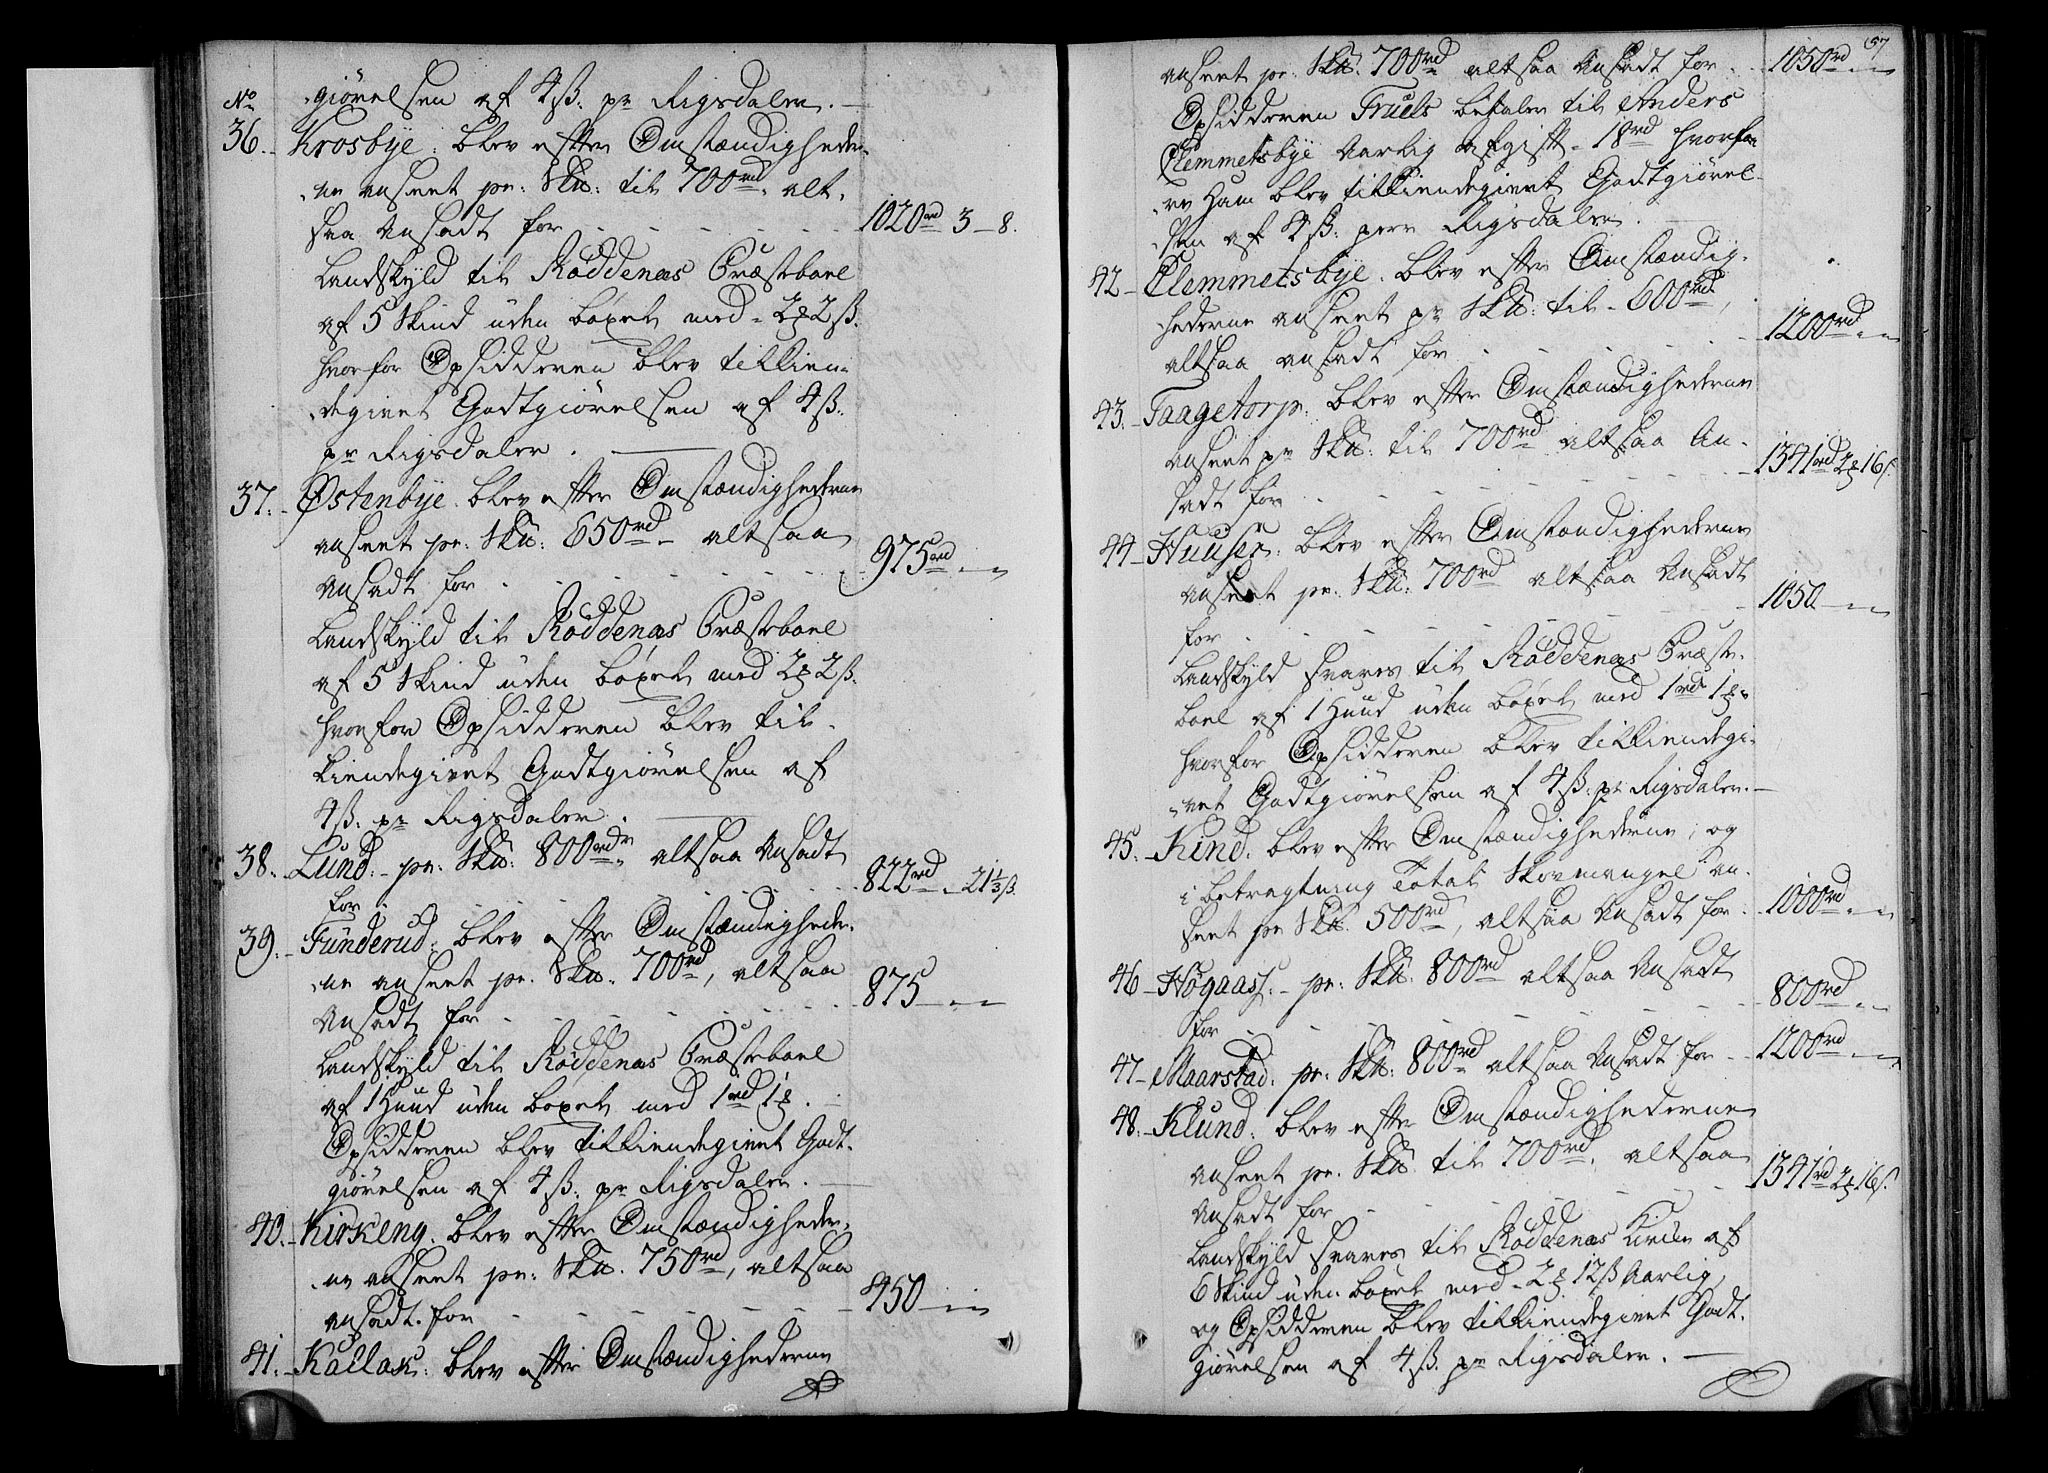 No
giørelsen af 4ß: pr Rigsdaler.
36. Krosbye: blev efter Omstændigheder-
ne anseet pr: Sk℔: til 700rd. alt-
saa Ansadt for - - - - - 1020rd 3 - 8.
Landskyld til Røddenæs Præsteboel
af 5 Skind uden bøxel med 2 ort 2ß.
hvorfor Opsidderen blev tilkien-
degivet Godtgiørelsen af 4ß:
pr Rigsdaler.
37. Østenbye. blev efter Omstændighederne
anseet pr: Sk℔: 650rd - altsaa
Ansadt for - - - - - 975rd - "
Landskyld til Røddenæs Præsteboel
af 5 Skind uden bøxel med 2 ort 2ß.
hvorfor Opsidderen blev til-
kiendegivet Godtgiørelsen af
4ß. pr Rigsdaler.
38. Lund. - pr: Sk℔: 800rdr altsaa Ansadt
for - - - - - 822rd - 21 1/3ß.
39. Funderud: blev efter Omstændigheder-
ne anseet pr: Sk℔. 700rd, altsaa
Ansadt for - - - - - 875 - "
Landskyld til Røddenæs Præsteboel
af 1 Huud uden bøxel med 1rd 1 ort.
Opsidderen blev tilkiendegivet Godt-
giørelsen af 4ß: pr Rigsdaler.
40. Kirkeng. blev efter Omstændigheder-
ne anseet pr: Sk℔. 750rd, altsaa
ansadt. for - - - - - 450 - "
41. Kallak: blev efter Omstændighederne
57
anseet pr: Sk℔. 700rd altsaa Ansadt for - 1050rd "
Opsidderen Truels betaler til Anders
Clemmetsbye Aarlig Afgift - 18rd hvorfor
Ham blev tilkiendegivet Godtgiørel-
sen af 4ß: per Rigsdaler.
42 - Clemmetsbye. blev efter Omstændig-
hederne anseet pr Sk℔: til - 600rd,
altsaa ansadt for - - - - - 1200rd "
43. - Taagetorp: blev efter Omstændighederne
anseet pr Sk℔: til 700rd altsaa An-
sadt for - - - - - 1341rd 2 ort 16ß.
44 - Huusen: blev efter Omstændighederne
anseet pr: Sk℔: 700rd altsaa Ansadt
for - - - - - 1050 - "
Landskyld svares til Røddenæs Præste-
boel af 1 Huud uden bøxel med 1rd 1 ort
hvorfor Opsidderen blev tilkiendegi-
vet Godtgiørelsen af 4ß: pr Rigsdaler.
45. - Kind. blev efter Omstændighederne, og
i betragtning Total Skovmangel an-
seet pr Sk℔. 500rd, altsaa Ansadt for - 1000rd "
46 - Høgaas: - pr: Sk℔: 800rd altsaa Ansadt
for - - - - - 800rd "
47 - Maarstad. pr: Sk℔: 800rd altsaa Ansadt for - 1200rd "
48. - Klund: blev efter Omstændighederne
anseet pr. Sk℔ til 700rd. altsaa
Ansadt for - - - - - 1341rd 2 ort 16ß.
Landskyld svares til Røddenæs Kirke af
6 Skind uden bøxel med 2 ort 12ß Aarlig,
og Opsidderen blev tilkiendegivet Godt-
giørelsen af 4ß. pr Rigsdaler.